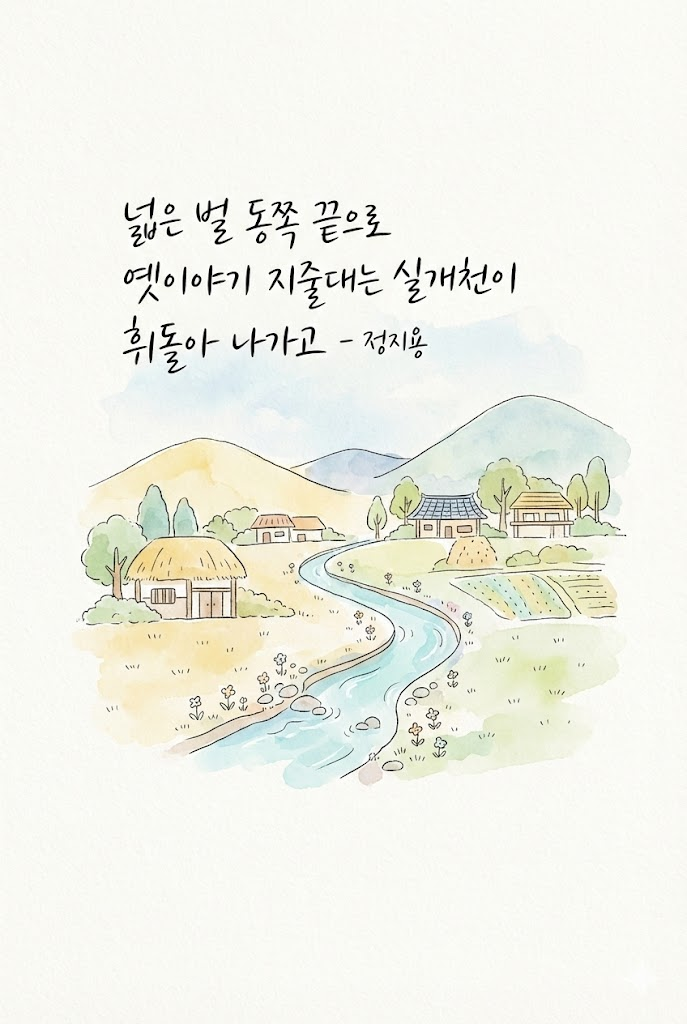 넓은 벌 동쪽 끝으로
옛이야기 지줄대는 실개천이
휘돌아 나가고 - 정지용